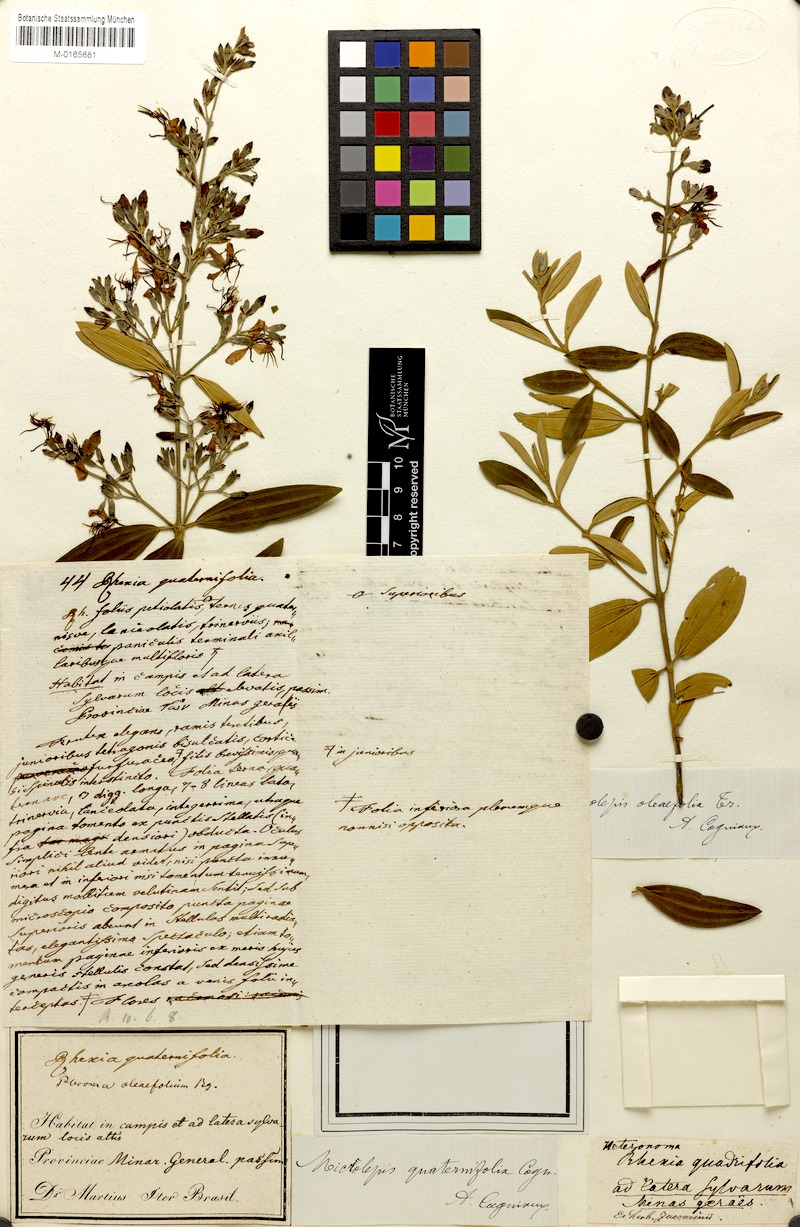 Botanische Staatssammlung München
M-0165681
BOTANISCHE
STAATSSAMMLUNG
MÜNCHEN
7 8 9 10
copyright reserved
44 Rhexia quaternifolia.
Rh. foliis petiolatis, ternis quater-
nisve, lanceolatis, trinerviis,
paniculis terminali axil-
laribusque multifloris
Habitat in campis et ad latera
Sylvarum locis elevatis, passim.
Provinciae Minas geraës
Frutex elegans, ramis teretibus,
junioribus tetragonis bisulcatis, cortice
furfuraceo,
interstincto. Folia terna, qua-
ternave, 3 digg. longa, 7-8 lineas lata,
trinervia, lanceolata, integerrima, utraque
pagina tomento ex punctis stellatis (in-
fra densiori) obducta. Oculus
simplici lente armatus in pagina supe-
riori nihil aliud videt, nisi puncta innu-
mera et in inferiori nisi tomentum tenuissimum,
digitus mollitiem velutinam sentit; sed sub
microscopio composito puncta paginae
superioris abeunt in stellulas multiradia-
tas, elegantissimo spectaculo; etiam to-
mentum paginae inferioris ex meris hujus
generis stellulis constat, sed densissime
compactis in areolas a venis folii in-
terceptas. Flores
σ superioribus
in junioribus
† Folia inferiora plerumque
nonnisi opposita.
olepis oleaefolia Tr.
A. Cogniaux.
Rhexia quaternifolia.
Pleroma oleaefolium
Habitat in campis et ad latera sylva-
rum locis altis
Provinciae Minar. General. passim
Dr. Martius Iter Brasil.
Microlepis quaternifolia Cogn.
A. Cogniaux.
Heteronoma
Rhexia quadrifolia
ad latera sylvarum
Minas geraës.
Ex herb. Zuccarinii.